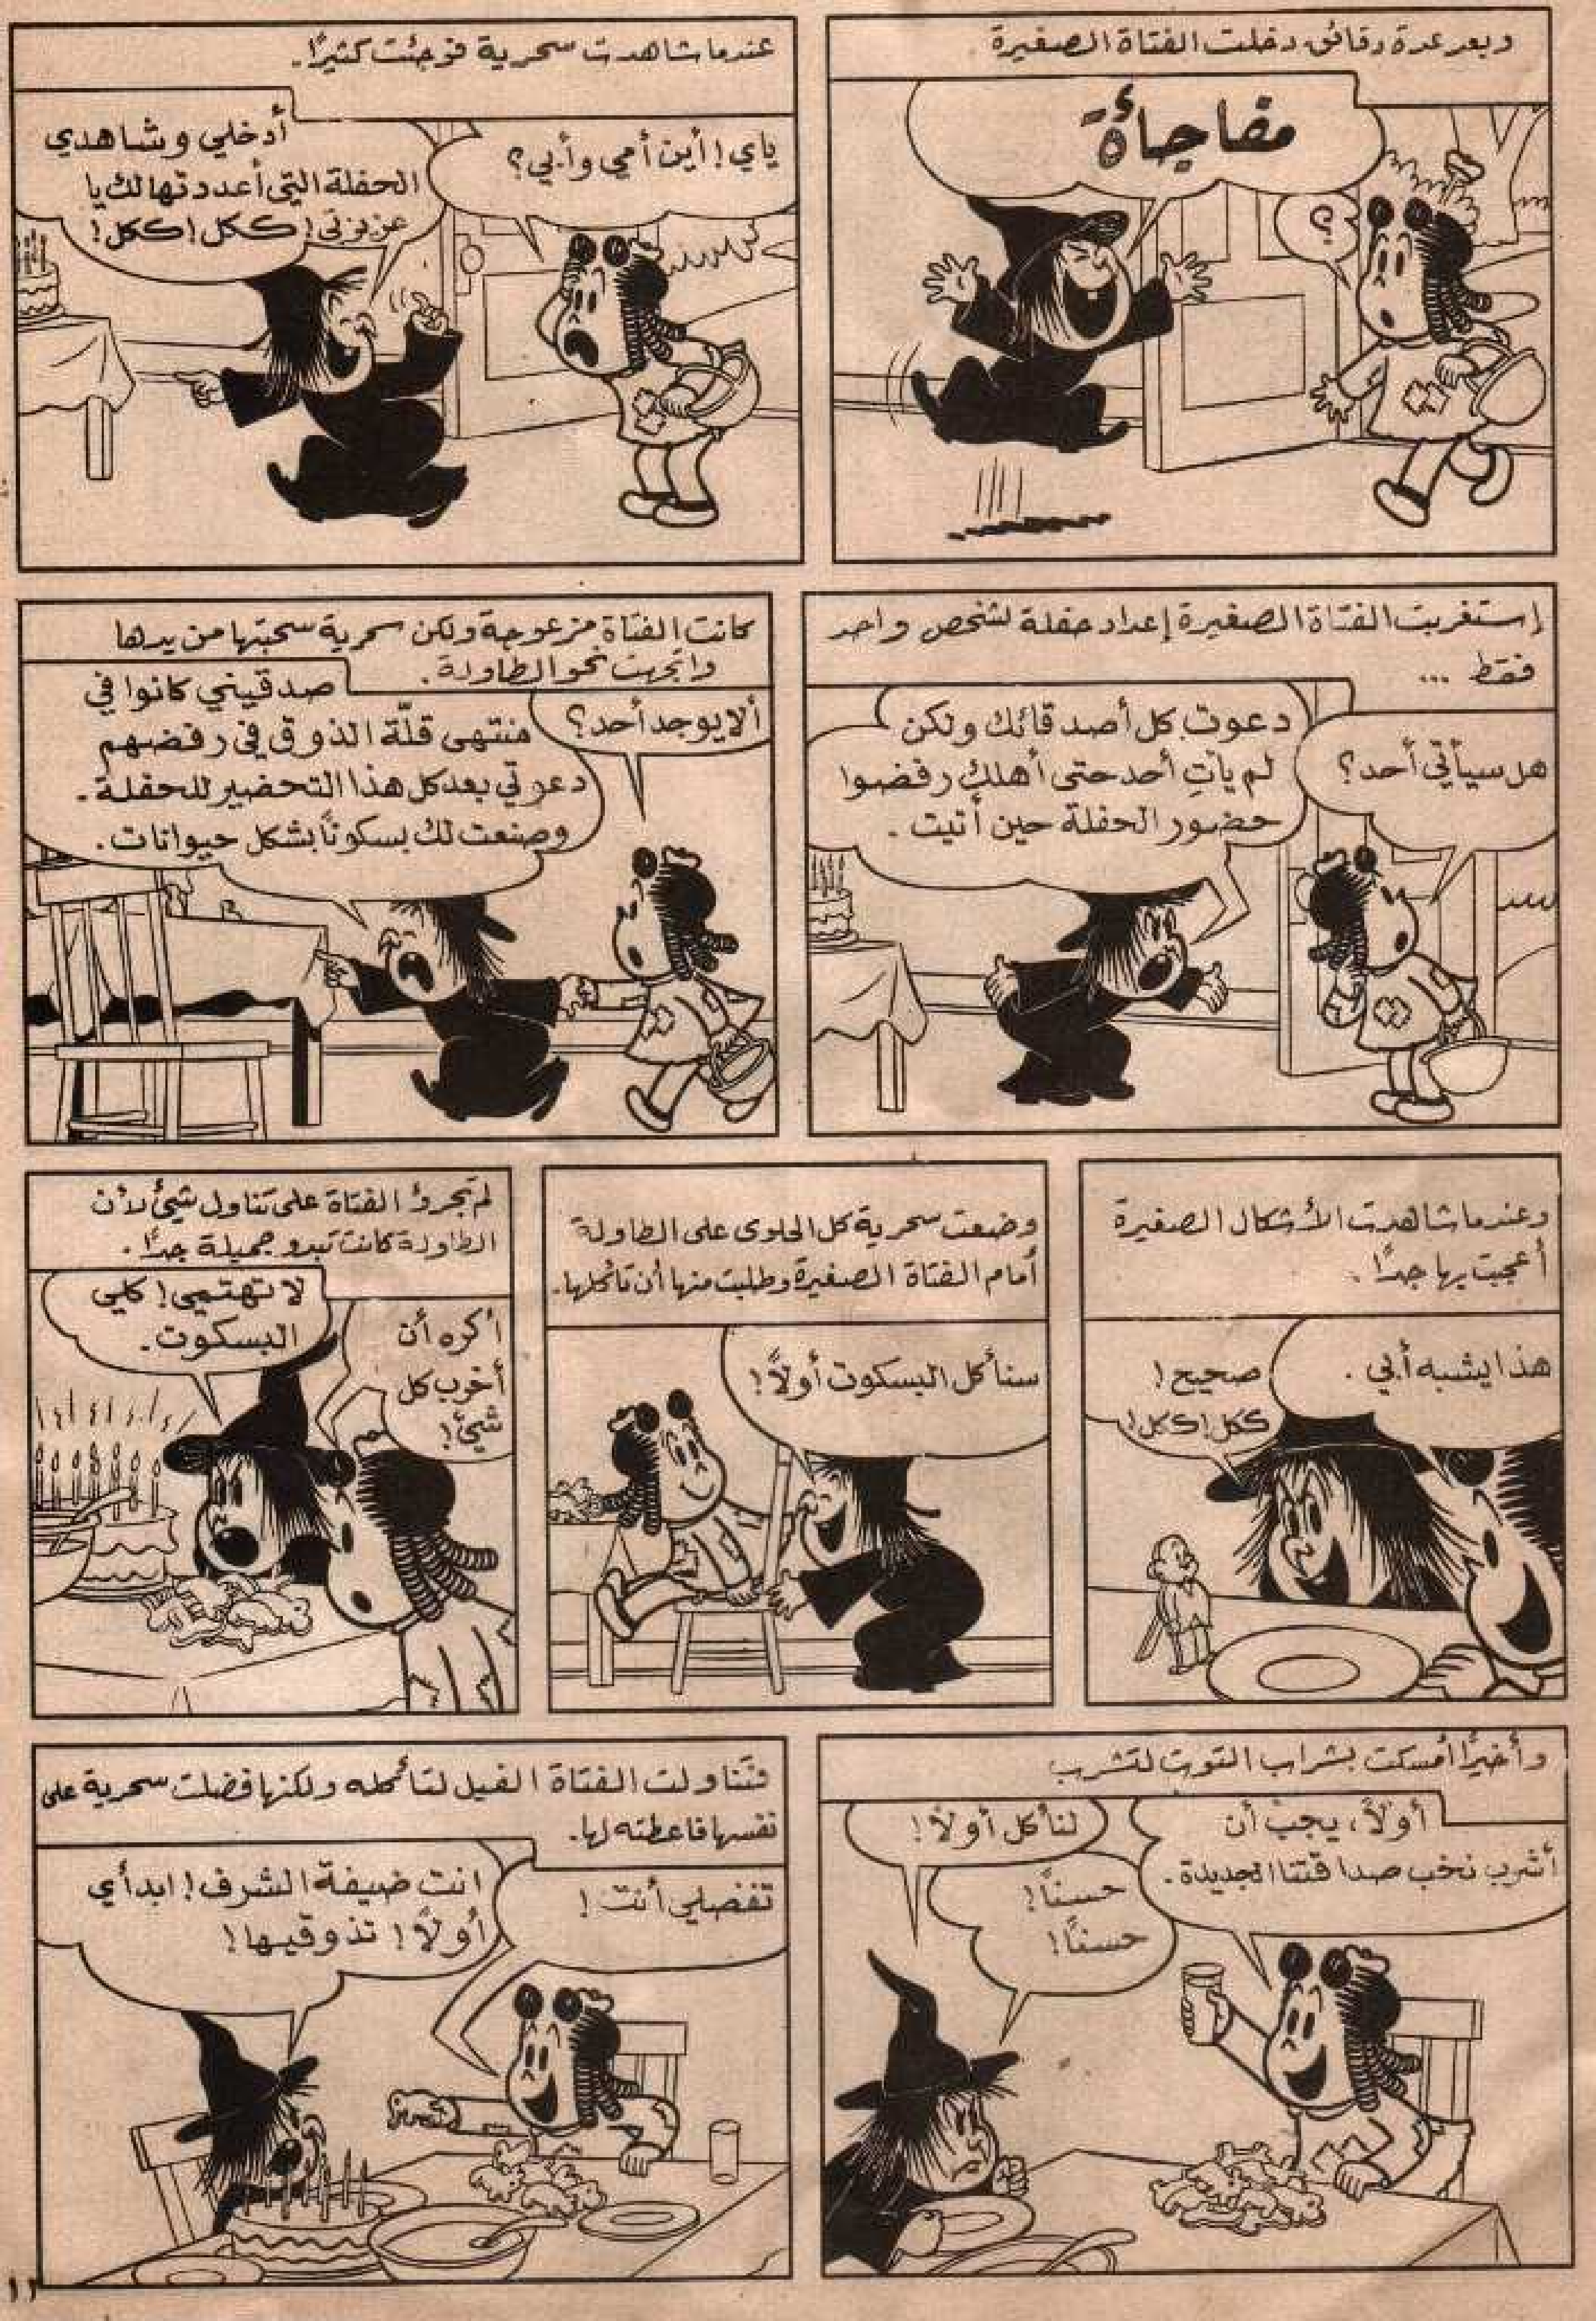 وبعد عدة دقائق دخلت الفتاة الصغيرة
مفاجأة
؟
عندما شاهدت سحرية فوجئت كثيرًا.
ياي! أين أمي وأبي؟
أدخلي وشاهدي
الحفلة التي أعددتها لك يا
عزيزتي! ككل! ككل!
إستغربت الفتاة الصغيرة إعداد حفلة لشخص واحد
فقط ...
هل سيأتي أحد؟
دعوت كل أصدقائك ولكن
لم يأتِ أحد حتى أهلكِ رفضوا
حضور الحفلة حين أتيت.
كانت الفتاة مزعوجة ولكن سحرية سحبتها من يدها
واتجهت نحو الطاولة.
ألا يوجد أحد؟
صدقيني كانوا في
منتهى قلّة الذوق في رفضهم
دعوتي بعد كل هذا التحضير للحفلة.
وصنعت لك بسكوتًا بشكل حيوانات.
وعندما شاهدت الأشكال الصغيرة
أعجبت بها جدًا.
هذا يشبه أبي.
صحيح!
ككل! ككل!
وضعت سحرية كل الحلوى على الطاولة
أمام الفتاة الصغيرة وطلبت منها أن تأكلها.
سنأكل البسكوت أولاً!
لم تجرؤ الفتاة على تناول شيئ لأن
الطاولة كانت تبدو جميلة جدًا.
أكره أن
أخرب كل
شيئ!
لا تهتمي! كلي
البسكوت.
وأخيرًا أمسكت بشراب التوت لتشرب
أولاً، يجب أن
أشرب نخب صداقتنا الجديدة.
لنأكل أولاً!
حسنًا!
حسنًا!
فتناولت الفتاة الفيل لتأكله ولكنها فضلت سحرية على
نفسها فاعطته لها.
تفضلي أنت!
انت ضيفة الشرف! ابدأي
أولاً! تذوقيها!
١١